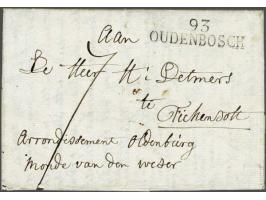 93
OUDENBOSCH
Aan
De Heer H: Detmers
te
Fickensolt
Arrondissement Oldenburg
Monde van den weser